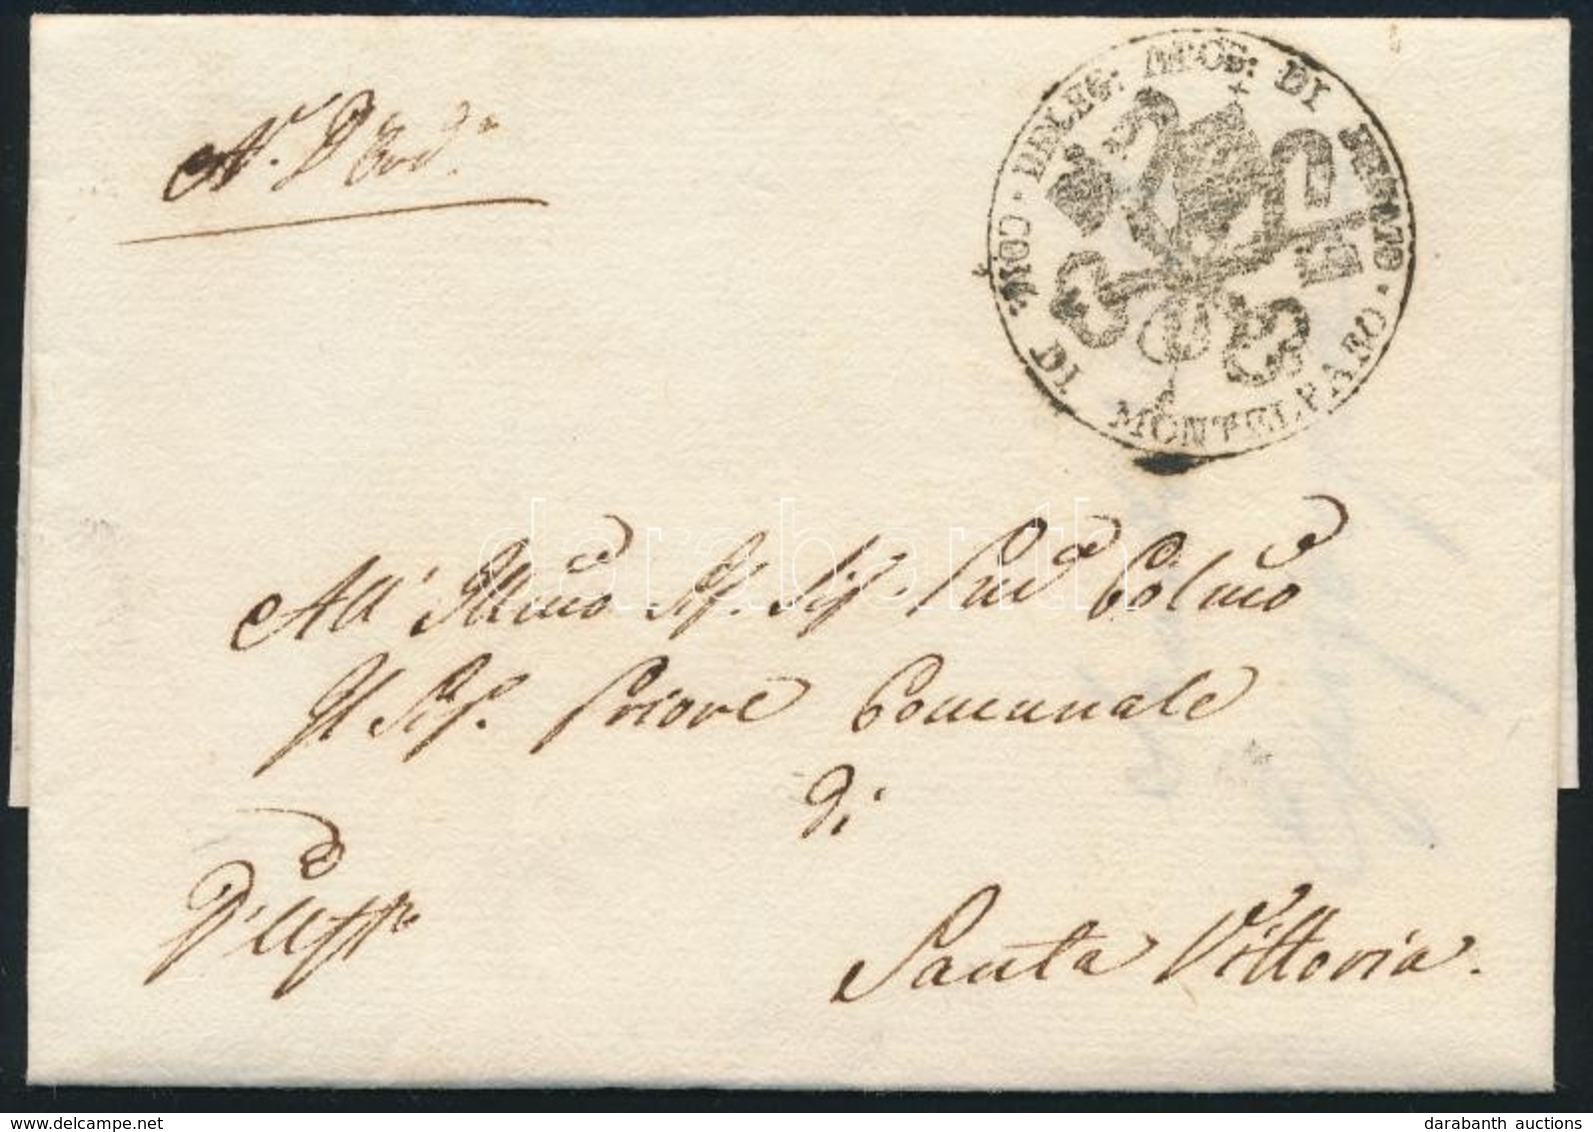 · DELEG: APOS: DI FERMO ·
COM. DI MONTELPARO
All' Illmo Sig. Sig. Prid Colmo
Il Sig. Priore Comunale
di
Santa Vittoria.
darabanth
darabanth auctions